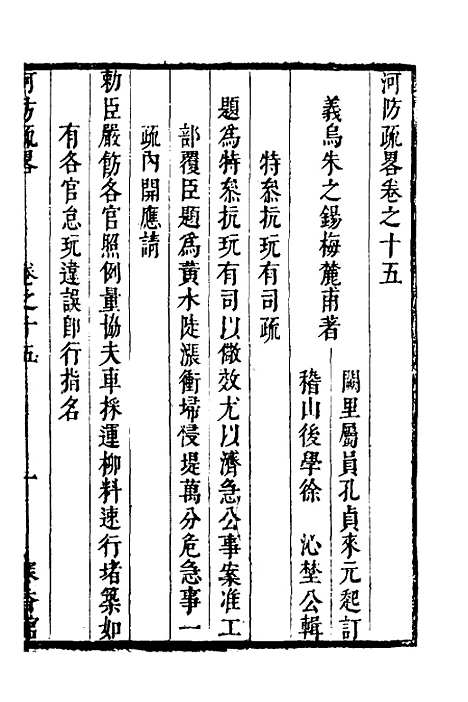 河防疏畧卷之十五
義烏朱之錫梅麓甫著
闕里屬員孔貞來元起訂
稽山後學徐 沁埜公輯
特叅抗玩有司疏
題為特叅抗玩有司以儆效尤以濟急公事案准工
部覆臣題為黃水陡漲衝埽侵堤萬分危急事一
疏內開應請
勅臣嚴飭各官照例量協夫車採運柳料速行堵築如
有各官怠玩違誤即行指名
河防疏畧
卷之十五
一